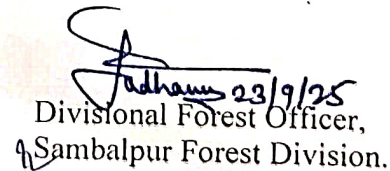 23/9/25
Divisional Forest Officer,
Sambalpur Forest Division.